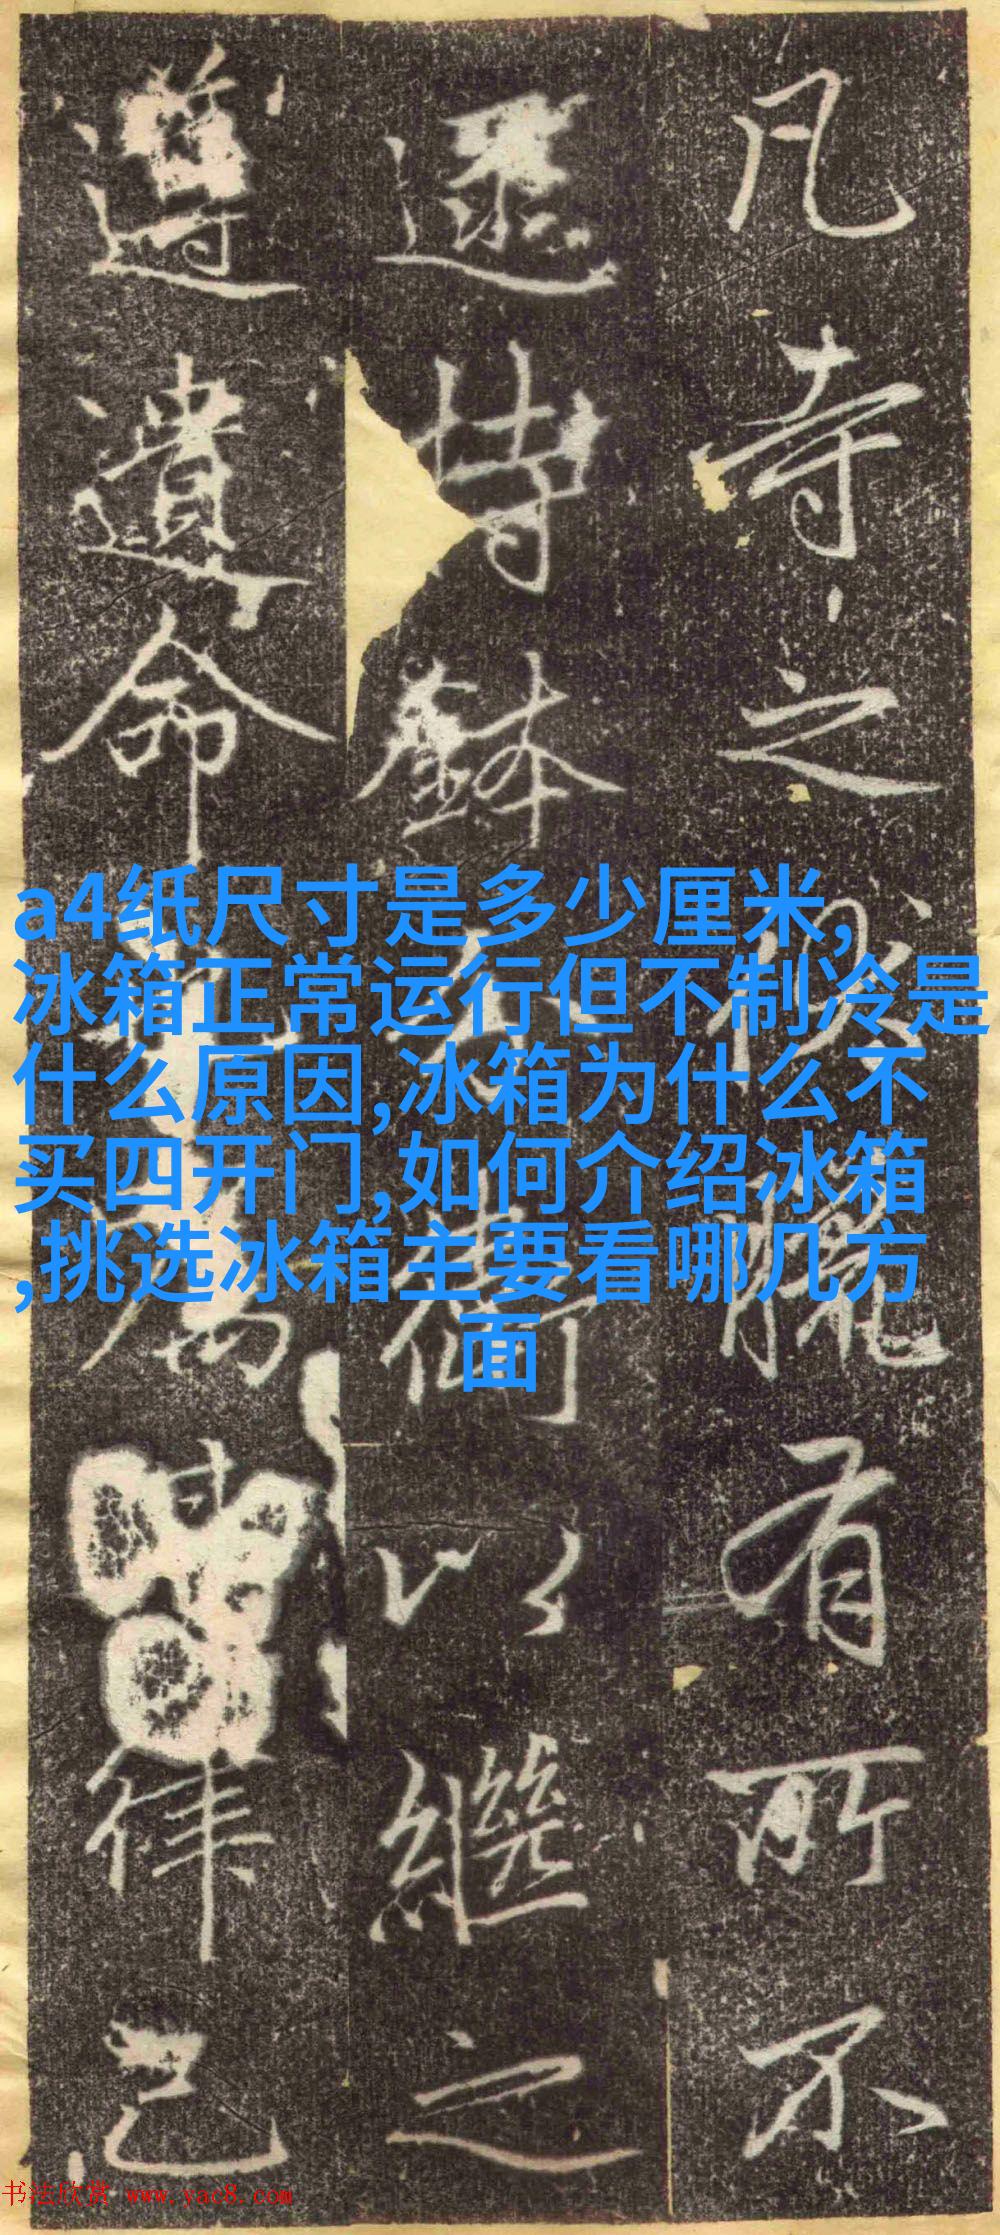 凡寺之僧臘有所不
逮持鉢

衛以繼之
遵遺命

律己
a4纸尺寸是多少厘米,
冰箱正常运行但不制冷是
什么原因,冰箱为什么不
买四开门,如何介绍冰箱
,挑选冰箱主要看哪几方
面
书法欣赏 www.yac8.com